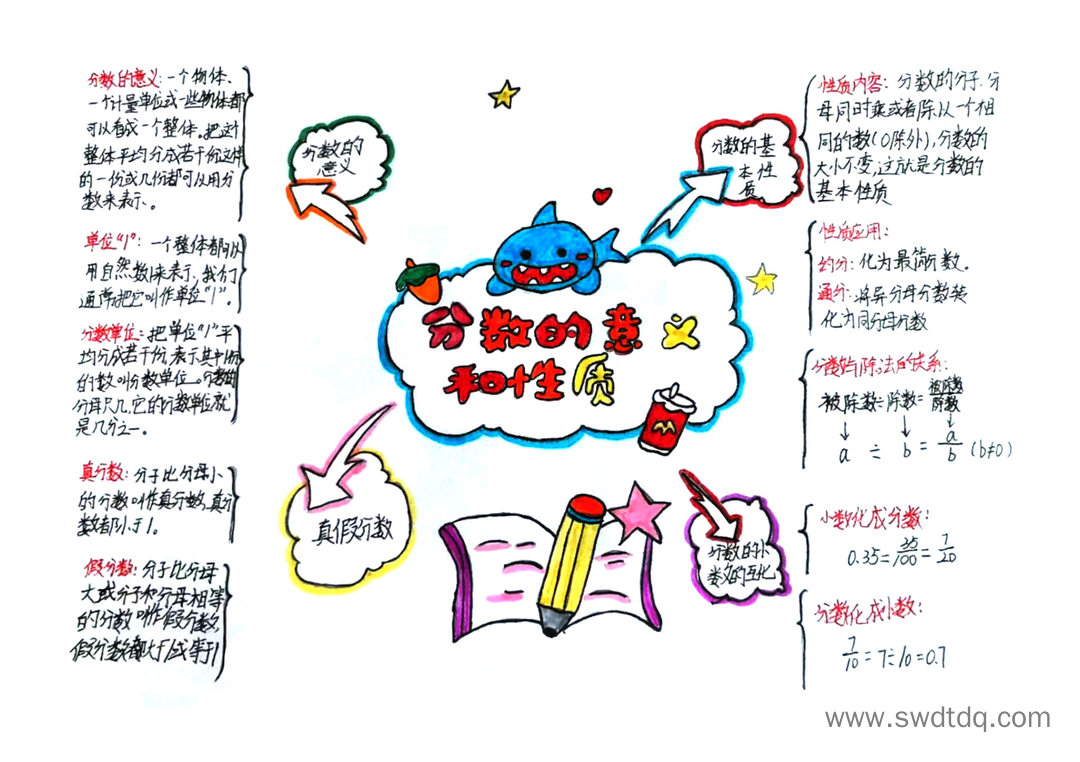 分数的意义
和性质
分数的
意义
分数的意义:一个物体、
一个计量单位或一些物体都
可以看成一个整体。把这个
整体平均分成若干份,这样
的一份或几份都可以用分
数来表示。
单位“1”:一个整体都可以
用自然数1来表示,我们
通常把它叫作单位“1”。
分数单位:把单位“1”平
均分成若干份,表示其中一份
的数叫分数单位。分数的
分母是几,它的分数单位就
是几分之一。
真假分数
真分数:分子比分母小
的分数叫作真分数,真分
数都小于1。
假分数:分子比分母
大或分子和分母相等
的分数叫作假分数
假分数都大于1或等于1
分数的基
本性
质
性质内容:分数的分子、分
母同时乘或者除以一个相
同的数(0除外),分数的
大小不变,这就是分数的
基本性质
性质应用:
约分:化为最简分数。
通分:将异分母分数转
化为同分母分数
分数与除法的关系:
被除数÷除数=被除数/除数
a ÷ b = a/b (b≠0)
分数的小
数的互化
小数化成分数:
0.35=35/100=7/20
分数化成小数:
7/10=7÷10=0.7
www.swdtdq.com